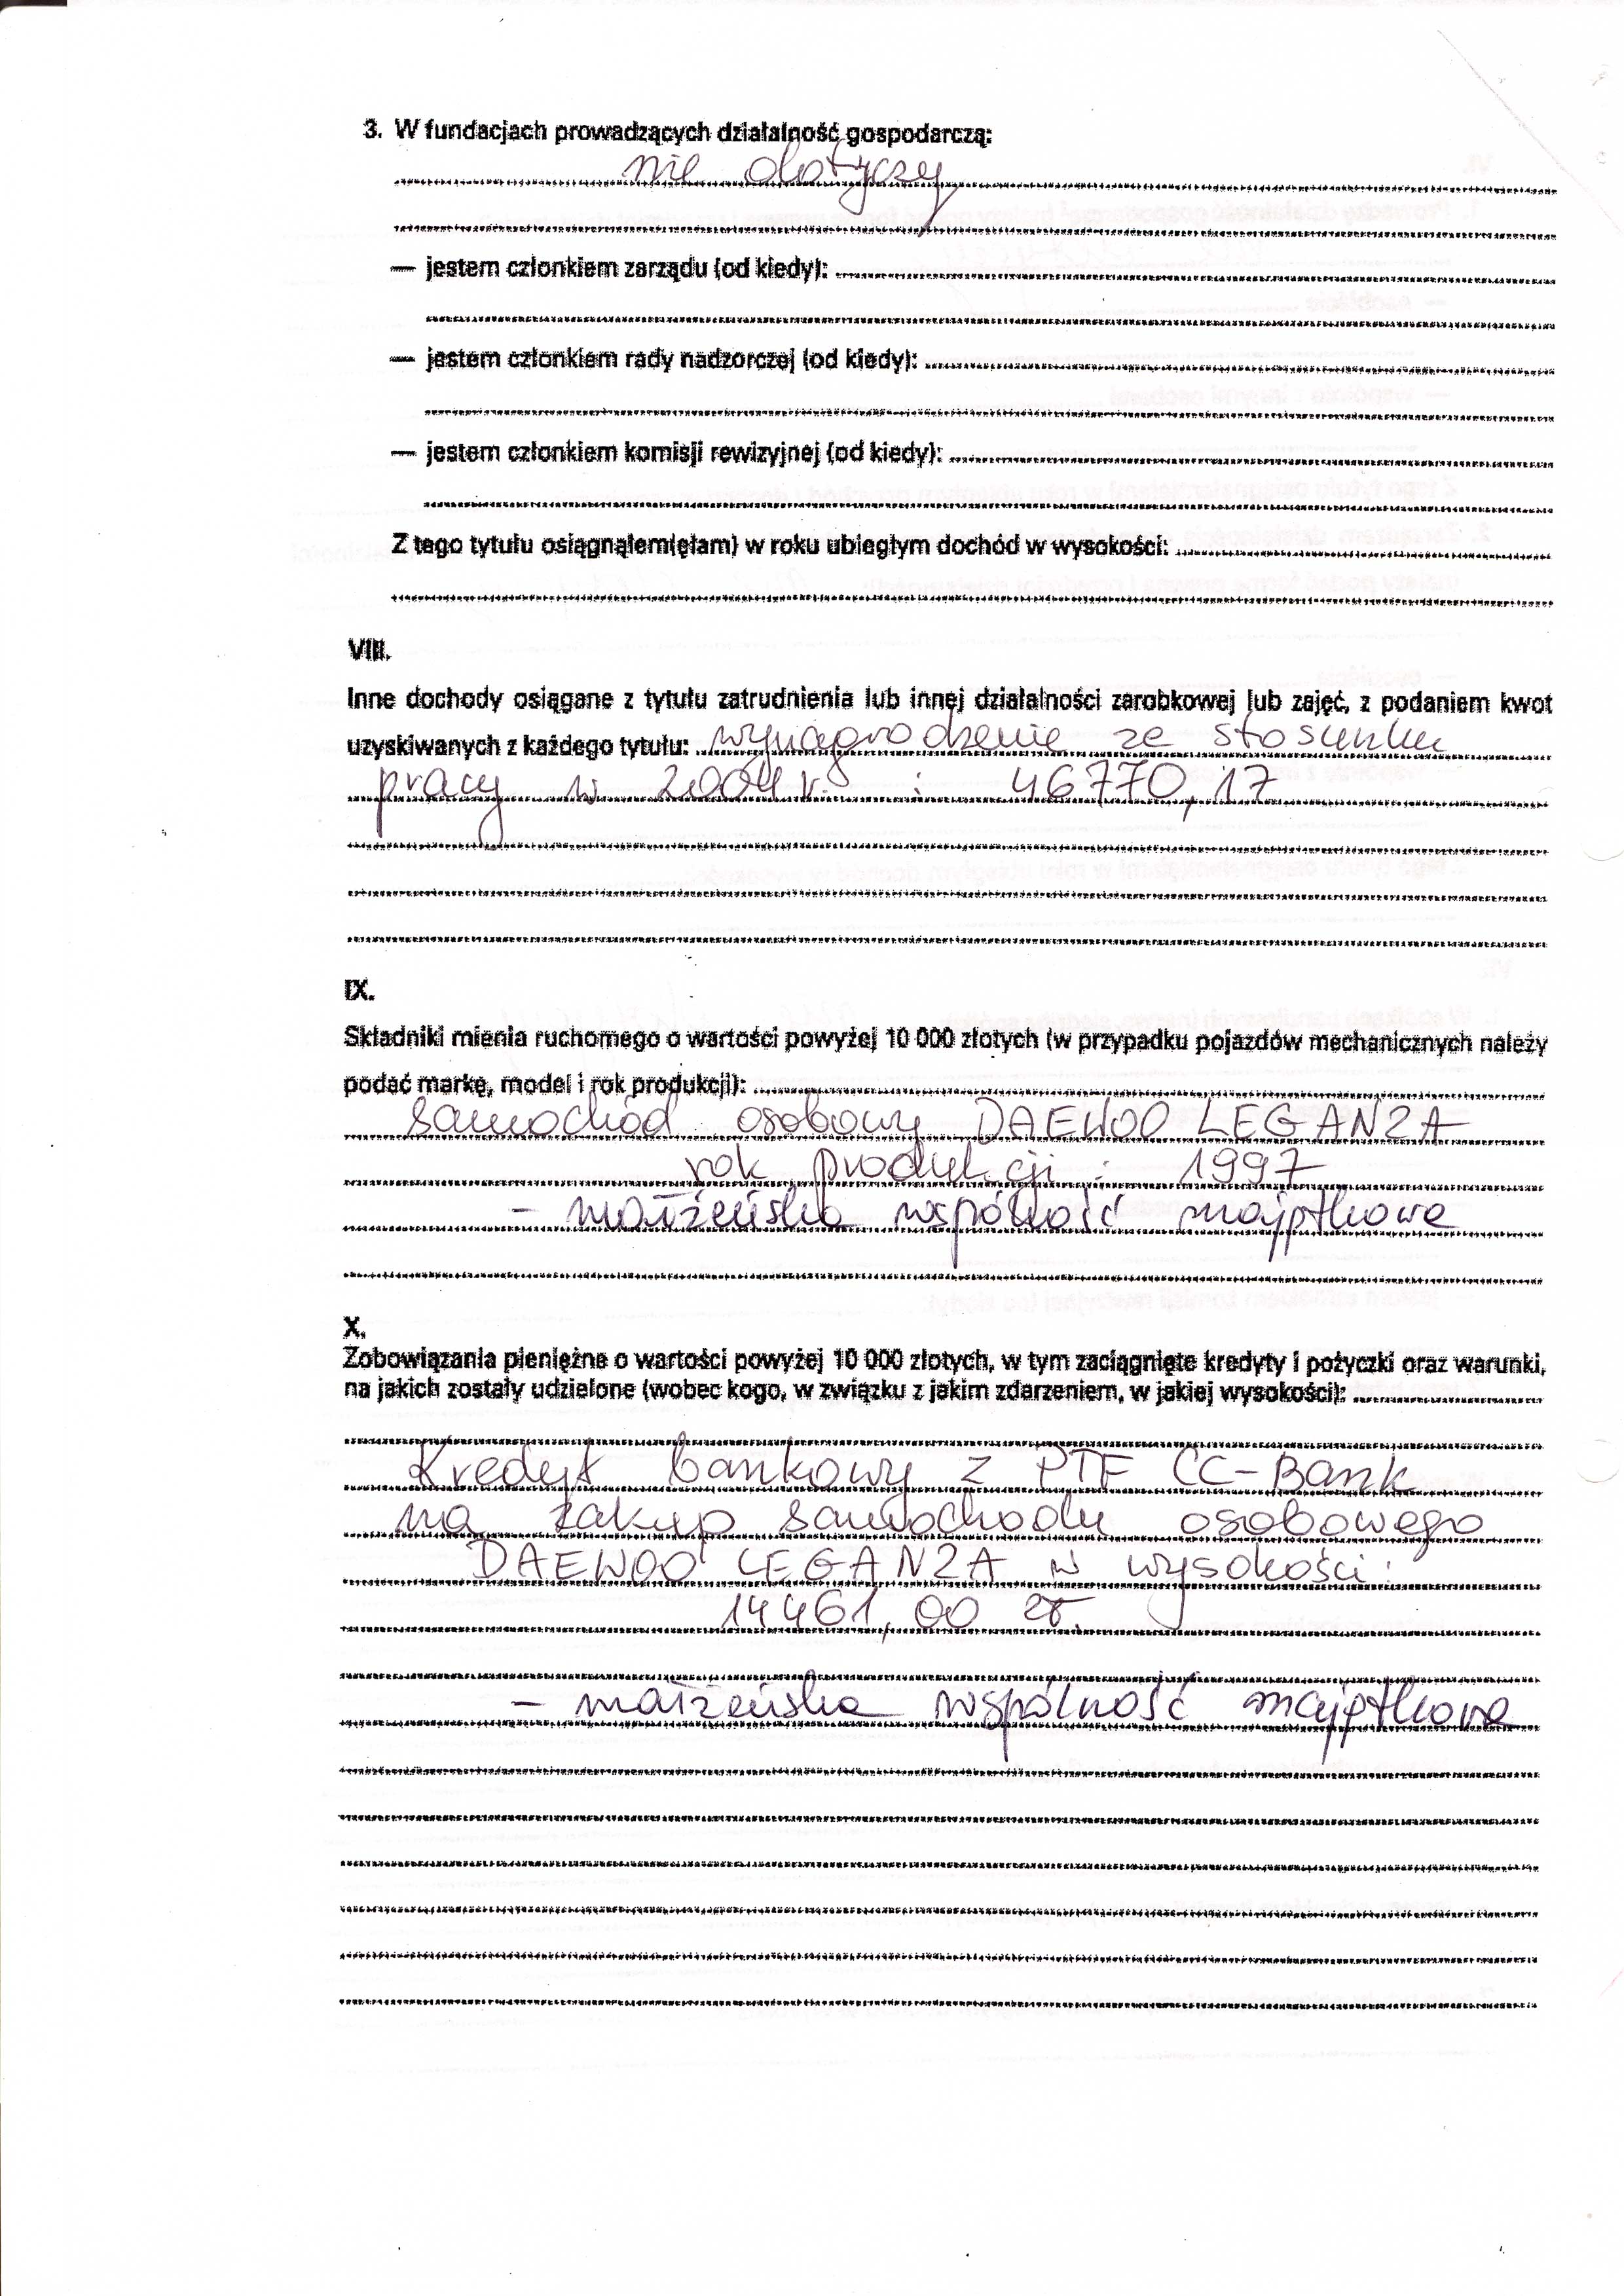 3. W fundacjach prowadzących działalność gospodarczą:
nie dotyczy
— jestem członkiem zarządu (od kiedy):
— jestem członkiem rady nadzorczej (od kiedy):
— jestem członkiem komisji rewizyjnej (od kiedy):
Z tego tytułu osiągnąłem(ęłam) w roku ubiegłym dochód w wysokości:
VIII.
Inne dochody osiągane z tytułu zatrudnienia lub innej działalności zarobkowej lub zajęć, z podaniem kwot
uzyskiwanych z każdego tytułu: wynagrodzenie ze stosunku
pracy w 2004 r. : 46770,17
IX.
Składniki mienia ruchomego o wartości powyżej 10 000 złotych (w przypadku pojazdów mechanicznych należy
podać markę, model i rok produkcji):
samochód osobowy DAEWOO LEGANZA
rok produkcji : 1997
- małżeńska wspólność majątkowa
X.
Zobowiązania pieniężne o wartości powyżej 10 000 złotych, w tym zaciągnięte kredyty i pożyczki oraz warunki,
na jakich zostały udzielone (wobec kogo, w związku z jakim zdarzeniem, w jakiej wysokości):
Kredyt bankowy z PTF CC-Bank
na zakup samochodu osobowego
DAEWOO LEGANZA w wysokości:
14461,00 zł.
- małżeńska wspólność majątkowa